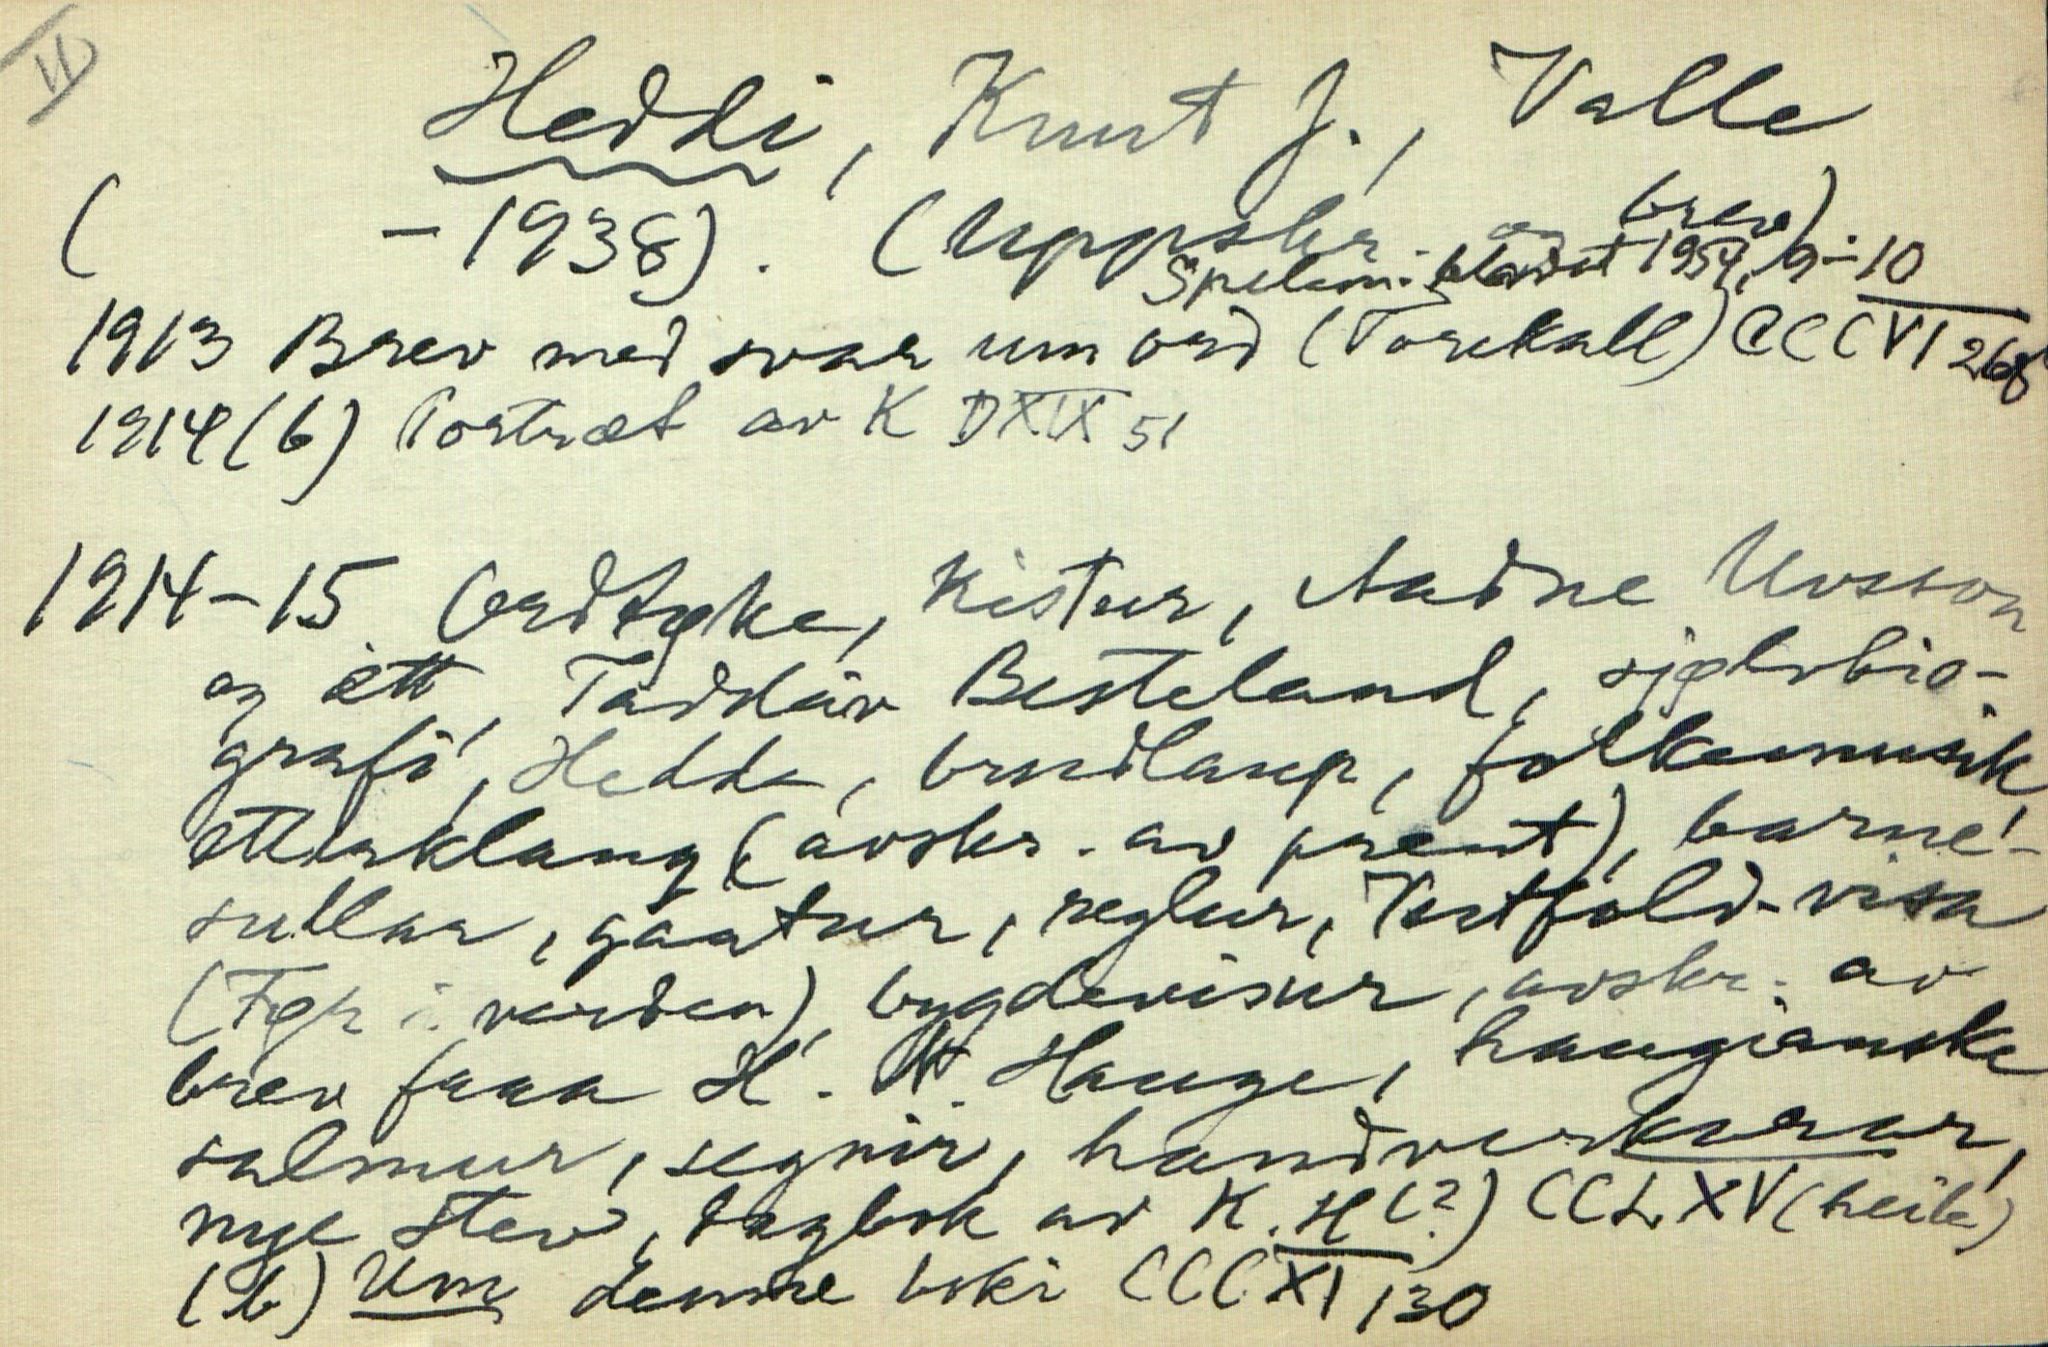 II
Heddi, Knut J., Valle
( -1938). (Uppskr. og brev)
Spelem. bladet 1954, 9-10
1913 Brev med svar um ord (Torekall) CCCVI 268
1914 (b) Portræt av K DXIX 51
1914-15. Ordtøke, Kistur, Aadne Uvsson
og ætt, Taddäiv Besteland, sjølvbio-
grafi, Hedde, brudlaup, folkemusik,
Etterklang (avskr. av prent), barne-
sullar, gaatur, reglur, Vestfold-visa
(Før i verden), bygdevisur, avskr. av
brev fraa H. N. Hauge, haugianske
salmur, segnir, handverkarar,
nye stev, dagbok av K. H (?) CCLXV (heile)
(b) Um denne boki CCCXI 130